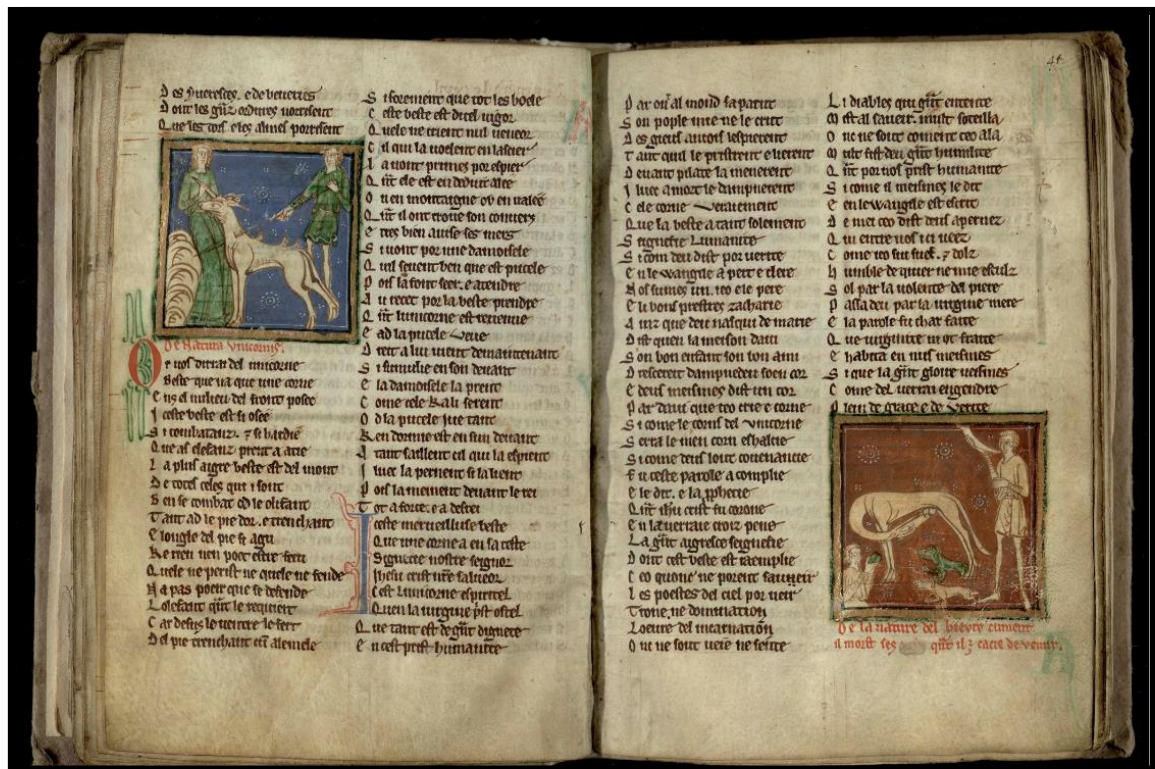 Des yveresces. e de beveries
Dont les
Que les
De Natura Unicornis.
Or vos dirrai del unicorne
Beste que na que une corne
Enz el milieu del front posee
Iceste beste est si osee
Si combatanz. et si hardie
Que as elefanz prent a atie
La plus aigre beste est del mont
De totes celes qui i sont
Ben se combat od le olifant
Tant ad le pie dor. e trenchant
E longle del pie si agu
Ke rien nen poet estre feru
Quele ne perist ne quele ne fende
Na pas poeir que se defende
Lolefant qnt le requiert
Car desus le ventre le fert
Del pie trenchant cu alemele
Si forement que tot les boele
Ceste beste est de tel vigor
Quele ne crient nul veneor
Cil qui la voelent enlascier
La vont primes por espier
Qnt ele est en deduit alee
Ou en montaigne ou en valee
Qnt il ont trove son convers
E tres bien avise ses mers
Si vont por une damoisele
Quil sevent ben que est pucele
Pois la font seer. e atendre
Au recet por la beste prendre
Qnt lunicorne est revenue
E ad la pucele veue
Dreit a lui vient demaintenant
Si sumilie en son devant
E la damoisele la prent
Come cele ka li se rent
O la pucele jue tant
Ken dormie est en sun devant
A tant saillent cil qui la espient
Iluec la pernent si la lient
Pois la meinent devant le rei
Tot a force. e a desrei
Iceste merveilluse beste
Que une corne a en sa teste
Signefie nostre seignor
Jhesu crist nre salveor
Cest lunicorne espiritel
Quen la virgine pst ostel
Que tant est de gnt dignete
E n cest prist humanite
44
Par ont al mond saparut
Son pople mie ne le crut
Des gieus ainçois lespierent
Tant quil le pristrent e lierent
Devant pilate la menerent
Iluec a mort le dampnerent
Cele corne veraiement
Que la beste a tant solement
Signefie lumanite
Si com deu dist por verite
En le wangile aperte e clere
Nos sumes un. ceo e le pere
E li bons prestres zacharie
Ainz que deu nasqui de marie
Dist quen la meison davi
Son bon enfant son bon ami
Drescereit dampnedeu soen cor
E deus meismes dist un cor
Par davi que ceo crie e corne
Si come le corns del unicorne
Serra le men corn eshalcie
Si come deus lout covenancie
Fu ceste parole acomplie
E le dit. e la pphecie
Qnt ihu crist fu corone
En la verraie croiz pene
La gnt aigresce seignefie
Dont cest beste est raemplie
Ceo quonc ne porent saveir
Les poestes del ciel por veir
Trone. ne dominacion
Loeure del incarnation
Onc ne sout veie ne sente
Li diables qui gnt entente
Mist al saveir. mult soteilla
Onc ne sout coment ceo ala
Mult fist deu gnt humilite
Qnt por nos prist humanite
Si come il meismes le dit
E en lewangile est escrit
De mei ceo dist deus apernez
Qui entre vos ici veez
Come ieo sui suef. et dolz
Humble de quier ne mie estulz
Sol par la volente del piere
Passa deu par la virgine mere
E la parole fu char faite
Que virginite ni ot fraite
E habita en nus meismes
Si que la gnt gloire veismes
Come del verrai engendre
Plein de grace e de verite
De la nature del bievre cument
il mort ses qnt il chacie de veneur.